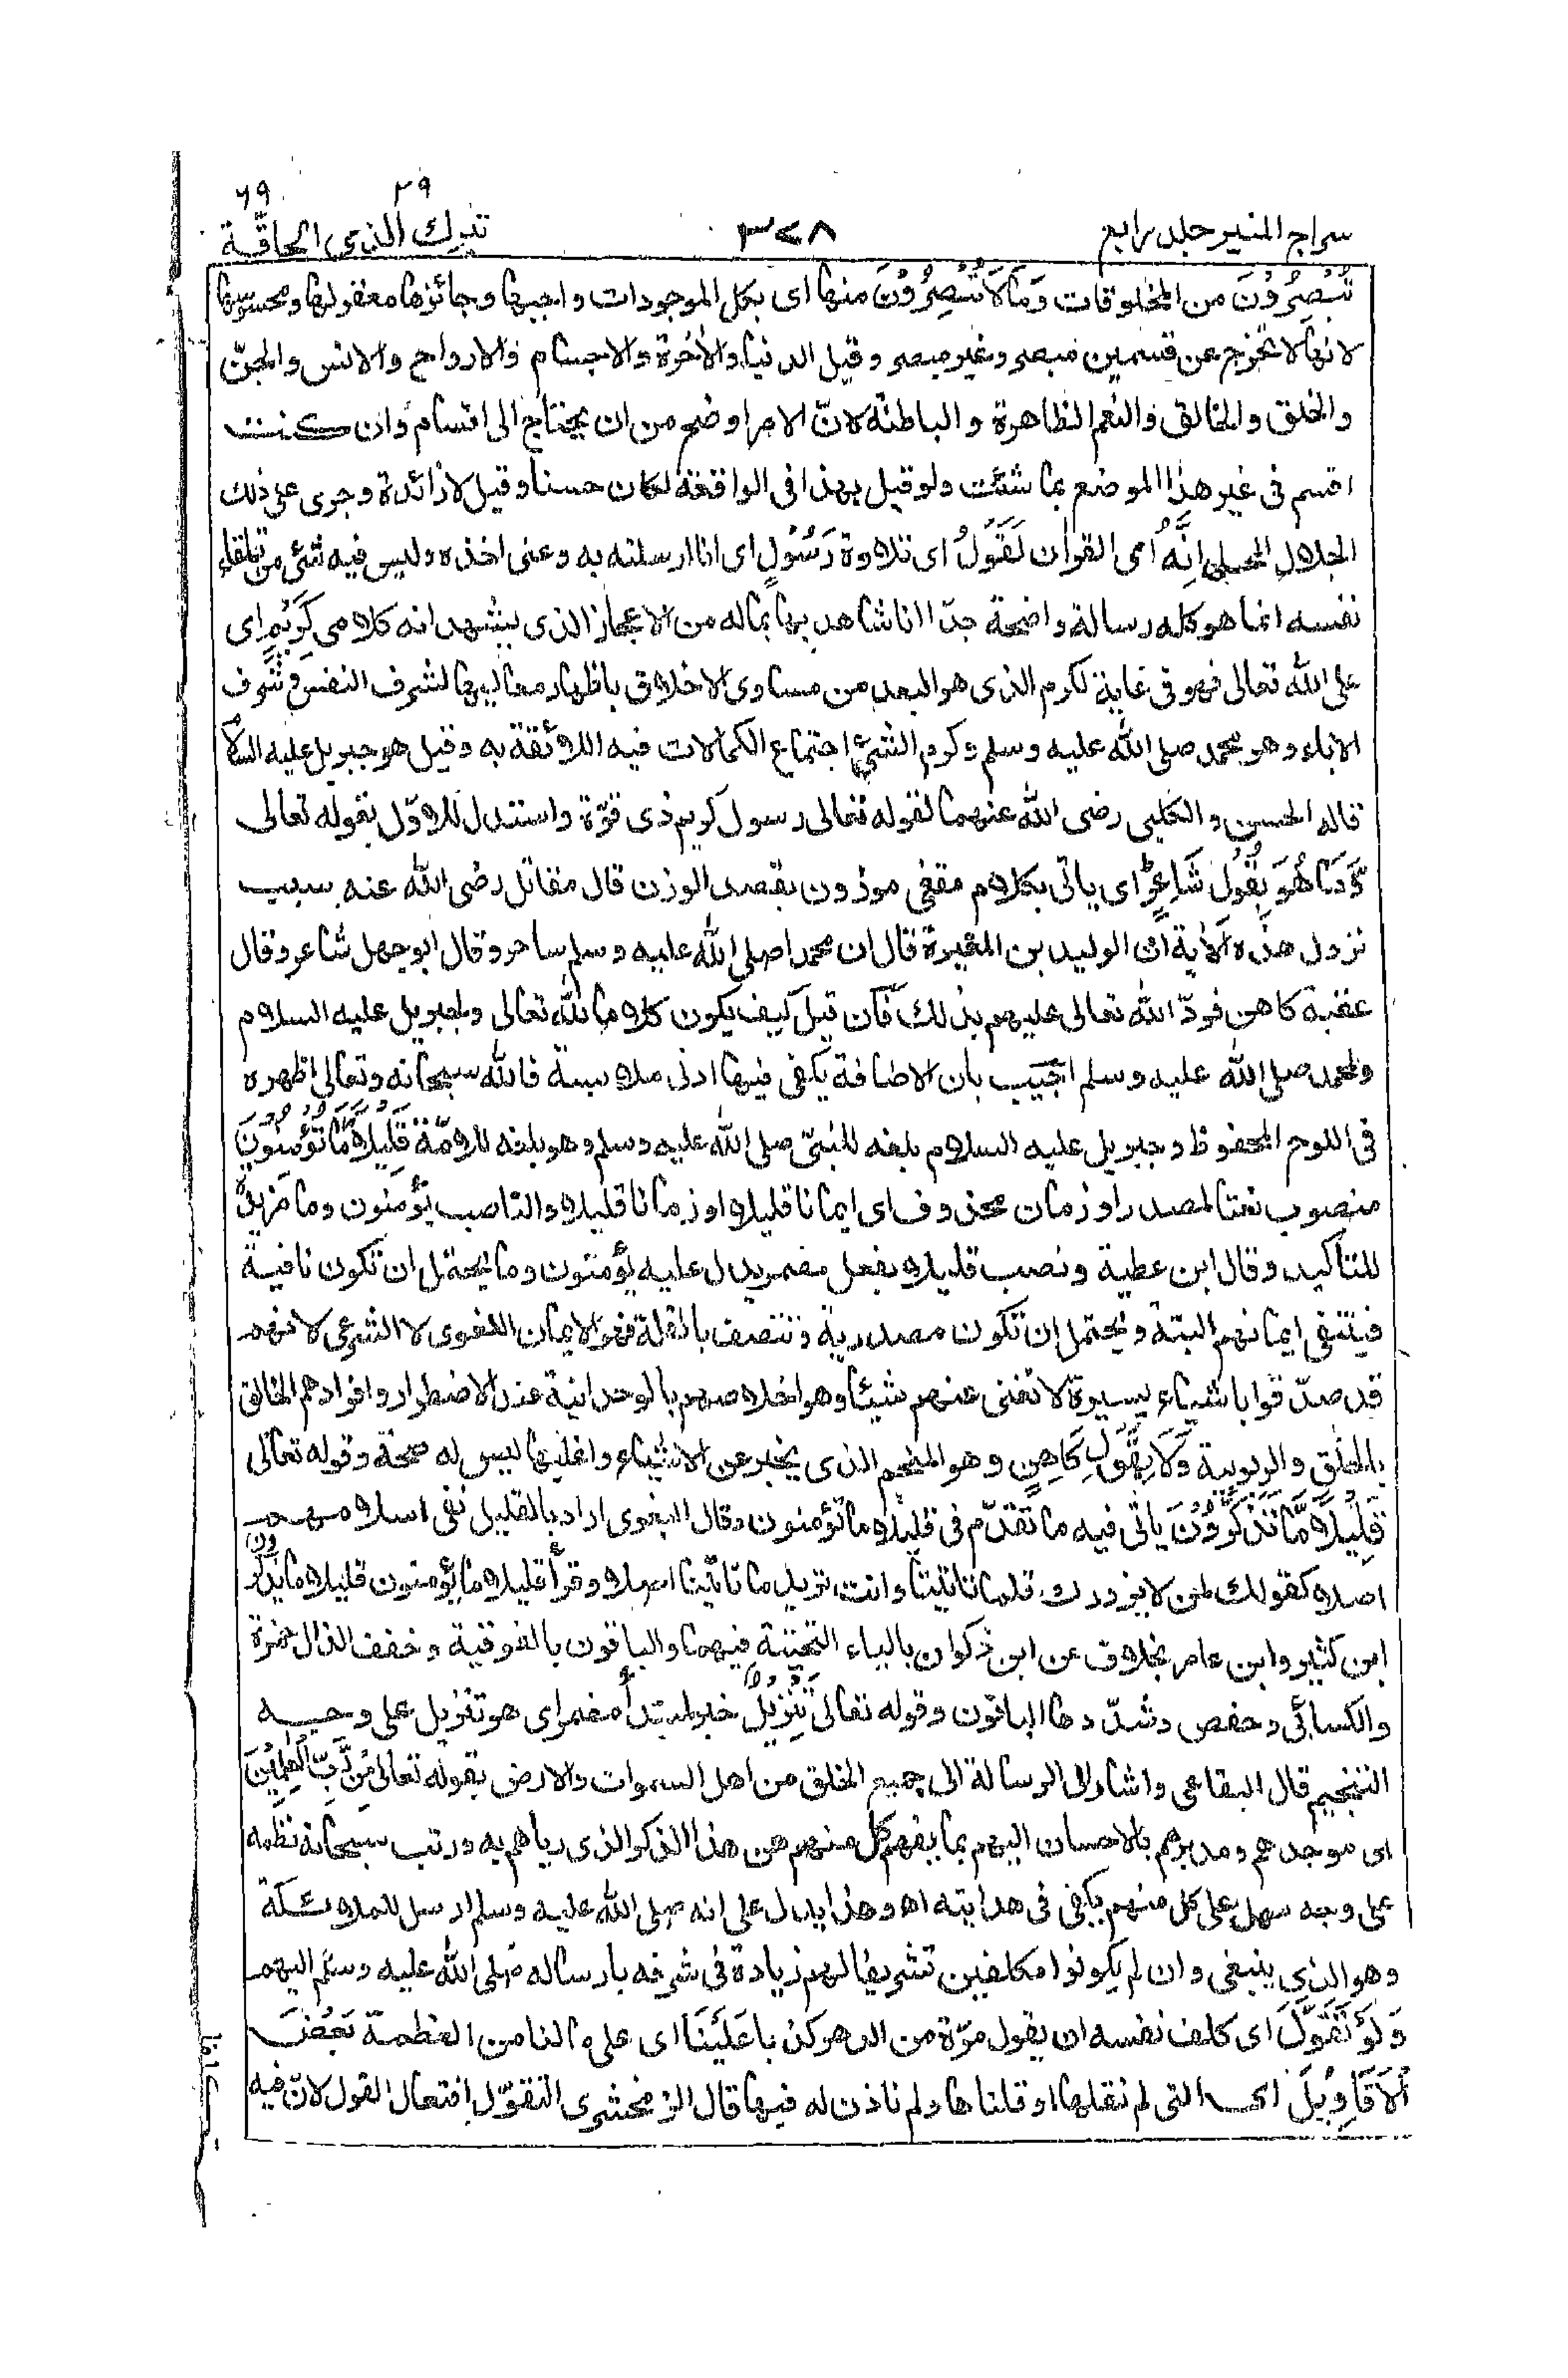 ٢٩ ٦٩
سراج المنير جلد رابع ٣٧٨ تبٰرك الذى الحاقّة
تُبْصِرُوْنَ من المخلوقات وَمَا لَا تُبْصِرُوْنَ منها اى بكل الموجودات واجبها وجائزها معقولها ومحسوسها
لانها لا تخرج عن قسمين مبصر وغير مبصر وقيل الدنيا والاٰخرة والاجسام والارواح والانس والجنّ
والخلق والخالق والنعم الظاهرة والباطنة لانّ الامر اوضح من ان يحتاج الى اقسام وان كنت
اقسم فى غير هذا الموضع بما شئت ولو قيل بهذا فى الواقعة لكان حسنا وقيل لا زائدة وجرى على ذلك
الجلال المحلى اِنَّهٗ اى القراٰن لَقَوْلُ اى تلاوة رَسُوْلٍ اى انا ارسلته به وعنى اخذه وليس فيه شئ من تلقاء
نفسه انما هو كله رسالة واضحة جدّا انا شاهد بها بماله من الاعجاز الذى يشهد انه كلامى كَرِيْمٍ اى
على الله تعالى فهو فى غاية الكرم الذى هو البعد من مساوى الاخلاق باظهار معاليها لشرف النفس وشرف
الاٰباء وهو محمد صلى الله عليه وسلم وكرم الشئ اجتماع الكمالات فيه اللائقة به وقيل هو جبريل عليه السلام
قاله الحسن والكلبى رضى الله عنهما لقوله تعالى رسول كريم ذى قوّة واستدل للاوّل بقوله تعالى
وَّمَا هُوَ بِقَوْلِ شَاعِرٍ اى ياتى بكلام مقفى موزون بقصد الوزن قال مقاتل رضى الله عنه سبب
نزول هذه الاٰية انّ الوليد بن المغيرة قال ان محمدا صلى الله عليه وسلم ساحر وقال ابو جهل شاعر وقال
عقبة كاهن فردّ الله تعالى عليهم بذلك فان قيل كيف يكون كلاما لله تعالى ولجبريل عليه السلام
ولمحمد صلى الله عليه وسلم اجيب بان الاضافة يكفى فيها ادنى ملابسة فالله سبحانه وتعالى اظهره
فى اللوح المحفوظ وجبريل عليه السلام بلغه للنبىّ صلى الله عليه وسلم وهو بلغه للامّة قَلِيْلًا مَّا تُؤْمِنُوْنَ
منصوب نعتا لمصدر او زمان محذوف اى ايمانا قليلا او زمانا قليلا والناصب يؤمنون وما مزيدة
للتاكيد وقال ابن عطية ونصب قليلا بفعل مضمر يدل عليه يؤمنون وما يحتمل ان تكون نافية
فينتفى ايمانهم البتة ويحتمل ان تكون مصدرية وتتصف بالقلة فهو الايمان اللغوى لا الشرعى لانهم
قد صدّقوا باشياء يسيرة لا تغنى عنهم شيئا وهو اخلاصهم بالوحدانية عند الاضطرار وافرادهم الخالق
بالخلق والربوبية وَلَا بِقَوْلِ كَاهِنٍ وهو المنجم الذى يخبر عن الاشياء واغلبها ليس له صحة وقوله تعالى
قَلِيْلًا مَّا تَذَكَّرُوْنَ ياتى فيه ما تقدّم فى قليلا ما تؤمنون وقال البغوى اراد بالقليل نفى اسلامهم
اصلا كقولك لمن لا يزورك قلما تاتينا وانت تريد ما تاتينا اصلا وقرأ قليلا ما يؤمنون قليلا ما يذكرون
ابن كثير وابن عامر بخلاف عن ابن ذكوان بالياء التحتية فيهما والباقون بالفوقية وخفف الذال حمزة
والكسائى وحفص وشدّدها الباقون وقوله تعالى تَنْزِيْلٌ خبر لمبتدأ مضمر اى هو تنزيل على وجه
التنجيم قال البقاعى واشار الى الرسالة الى جميع الخلق من اهل السموات والارض بقوله تعالى مِّنْ رَّبِّ الْعٰلَمِيْنَ
اى موجدهم ومدبرهم بالاحسان اليهم بما يفهم كل منهم من هذا الذكر الذى رباهم به ورتب سبحانه نظمه
على وجه سهل على كل منهم يكفى فى هدايته اه وهذا يدل على انه صلى الله عليه وسلم ارسل للملائكة
وهو الذى ينبغى وان لم يكونوا مكلفين تشريفا لهم زيادة فى شرفه بارساله صلى الله عليه وسلم اليهم
وَلَوْ تَقَوَّلَ اى كلف نفسه ان يقول مرّة من الدهر كذبا عَلَيْنَا اى على ما لنا من العظمة بَعْضَ
الْاَقَاوِيْلَ اى التى لم نقلها او قلناها ولم ناذن له فيها قال الزمخشرى التقوّل افتعال القول لانّ فيه